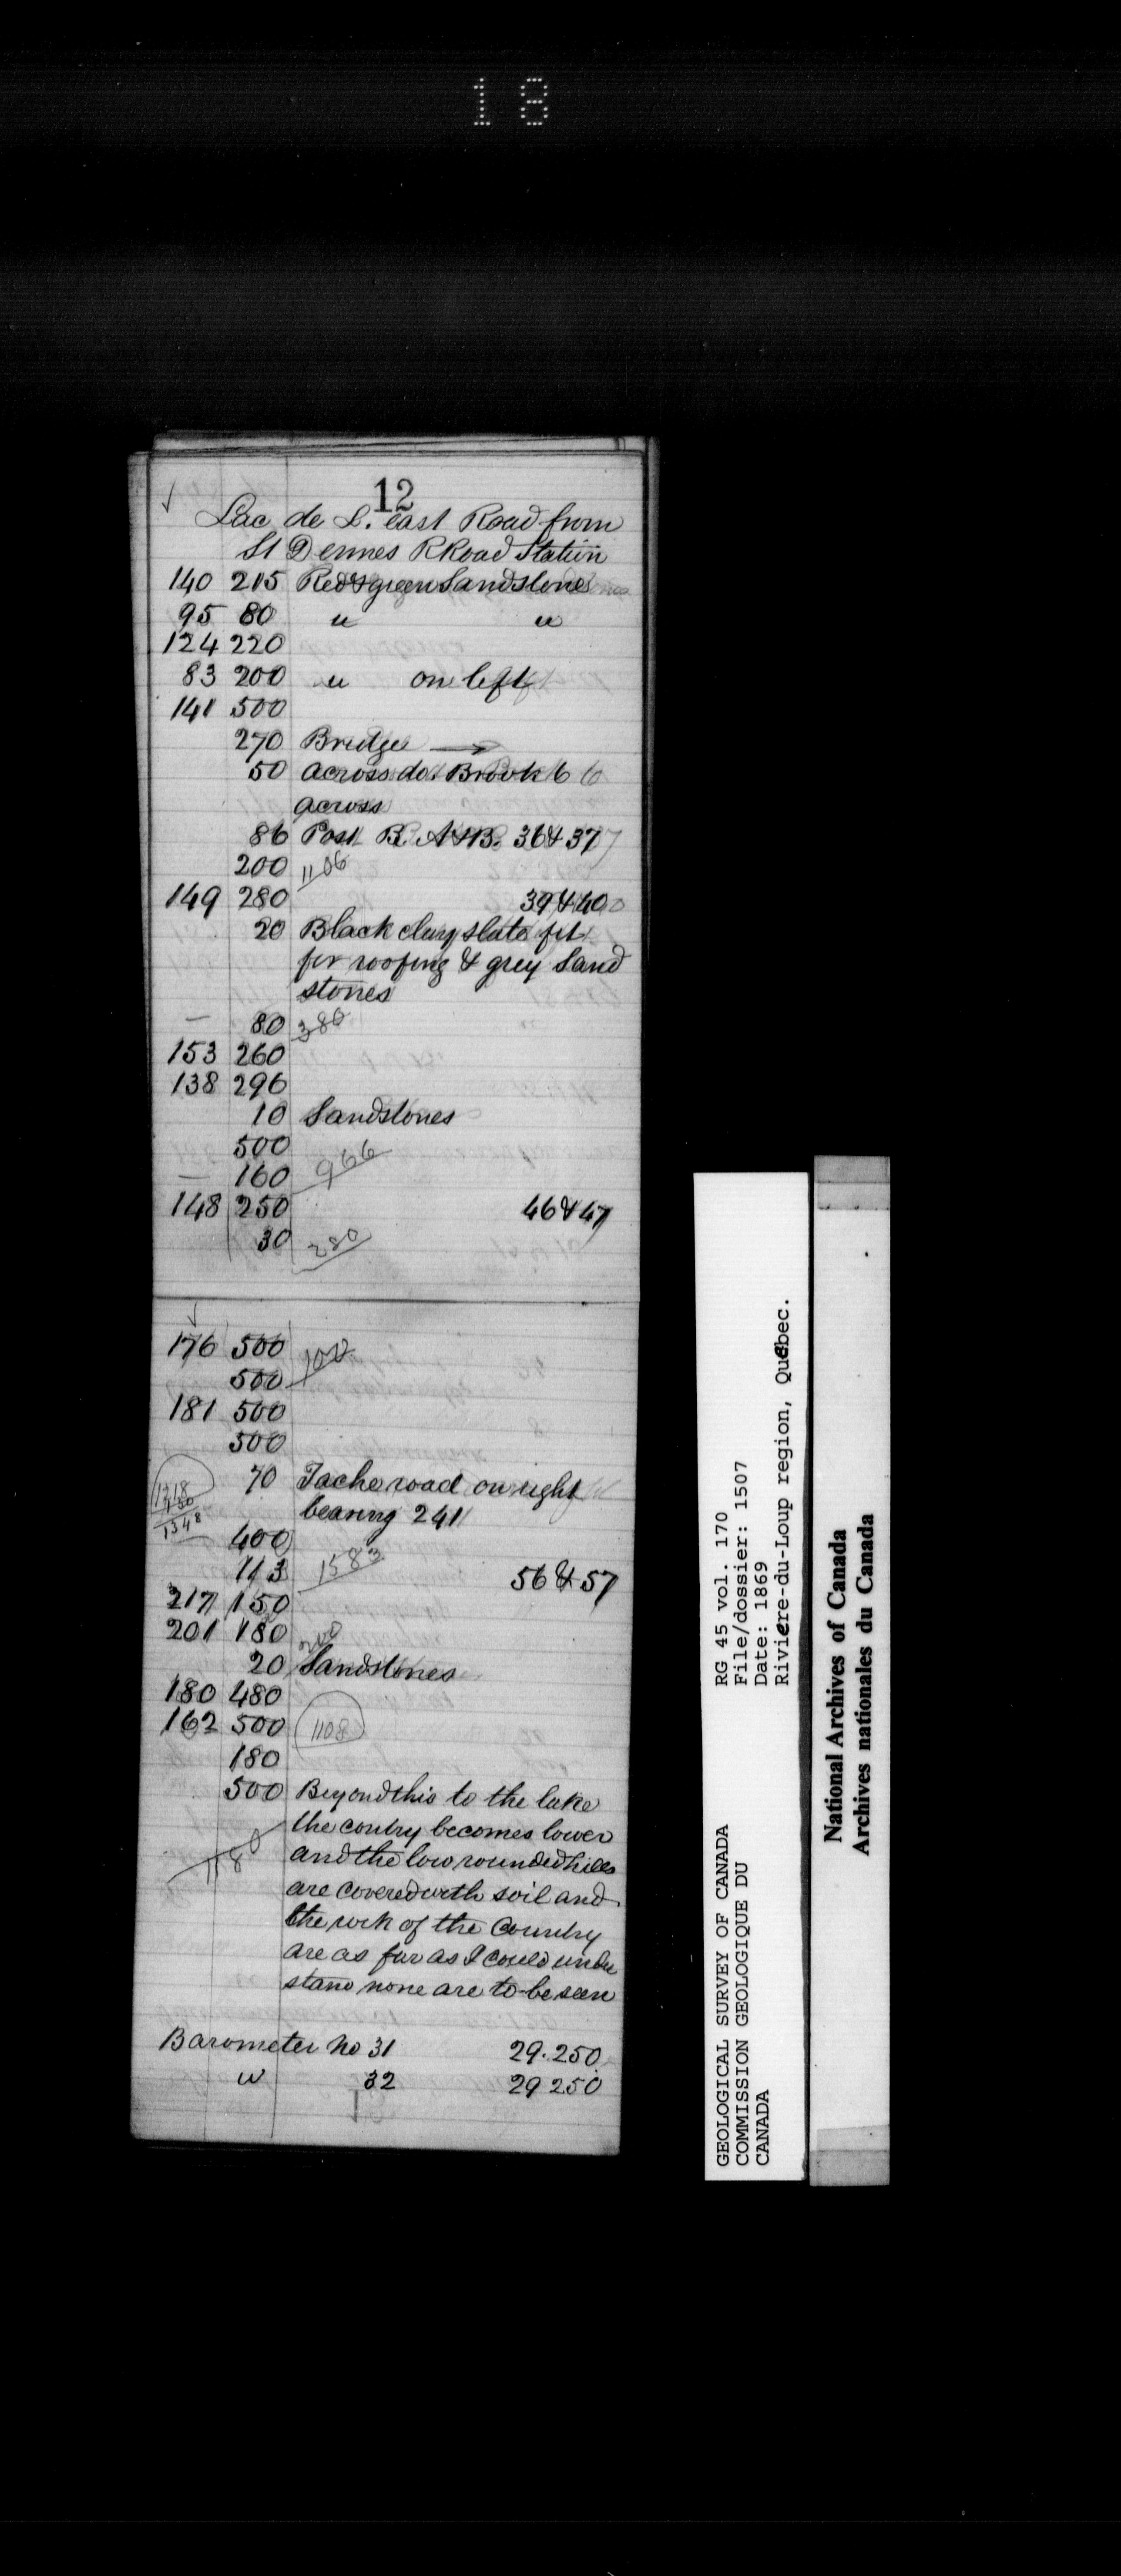 18
12
Lac de L. east Road from
St Dennes RRoad Station
140 215 Red & green Sandstones
95 80 " "
124 220
83 200 " on left
141 500
270 Bridge →
50 across do. Brook 6
across
86 Post B. A & B. 36 & 37
200 1106
149 280 39 & 40
20 Black clay slate fit
for roofing & grey Sand
stones
— 80 380
153 260
138 296
10 Sandstones
500
— 160 966
148 250 46 & 47
30 280
176 500
500
181 500
500
70 Tache road on right
bearing 241
1218
130
1348
400
113 1583 56 & 57
217 150
201 180 200
20 Sandstones
180 480
162 500 1108
180
500 Beyond this to the lake
the contry becomes lower
and the low rounded hills
1180
are covered with soil and
the rock of the Country
are as far as I could under
stand none are to be seen
Barometer No 31 29.250
" 32 29 250
GEOLOGICAL SURVEY OF CANADA
COMMISSION GEOLOGIQUE DU
CANADA
RG 45 vol. 170
File/dossier: 1507
Date: 1869
Riviere-du-Loup region, Québec.
National Archives of Canada
Archives nationales du Canada